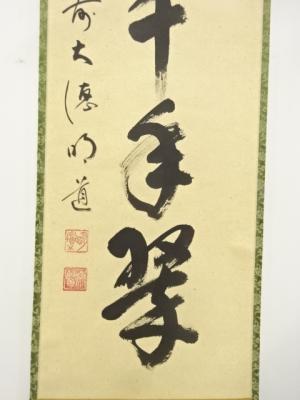 千年翠
前大徳明道